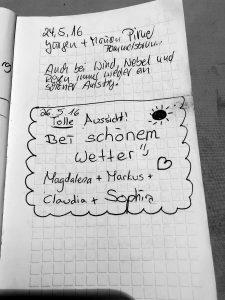 24.5.16
Jürgen +
Auch bei Wind, Nebel und
Regen immer wieder ein
schöner
26.5.16
Tolle Aussicht!
Bei schönem
Wetter
Magdalena + Markus +
Claudia + Sophia